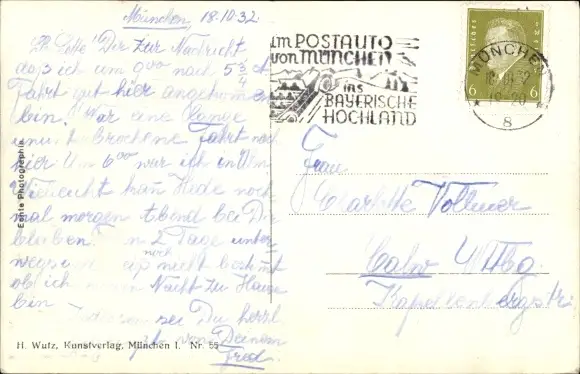 München, 18.10.32.
Lb. Lotte! Dir zur Nachricht
daß ich um 6⁰⁰ nach 5 3/4 st
Fahrt gut hier angekommen
bin! War eine lange
ununterbrochene Fahrt nach
hier. Um 6⁰⁰ war ich in Ulm
Vielleicht kann Heide noch
mal morgen Abend bei Dir
bleiben. 2 Tage unter-
wegs noch nicht bestimmt
ob ich Nacht zu Hause
bin.
sei Du herzl.
von Deinem
Fred.
Im POSTAUTO
von MÜNCHEN
ins
BAYERISCHE
HOCHLAND
MÜNCHEN
8
6 6
Frau
Charlotte Vollmer
Calw Wttbg.
Kapellenbergstr.
Echte Photographie
H. Wutz, Kunstverlag, München I. Nr. 55